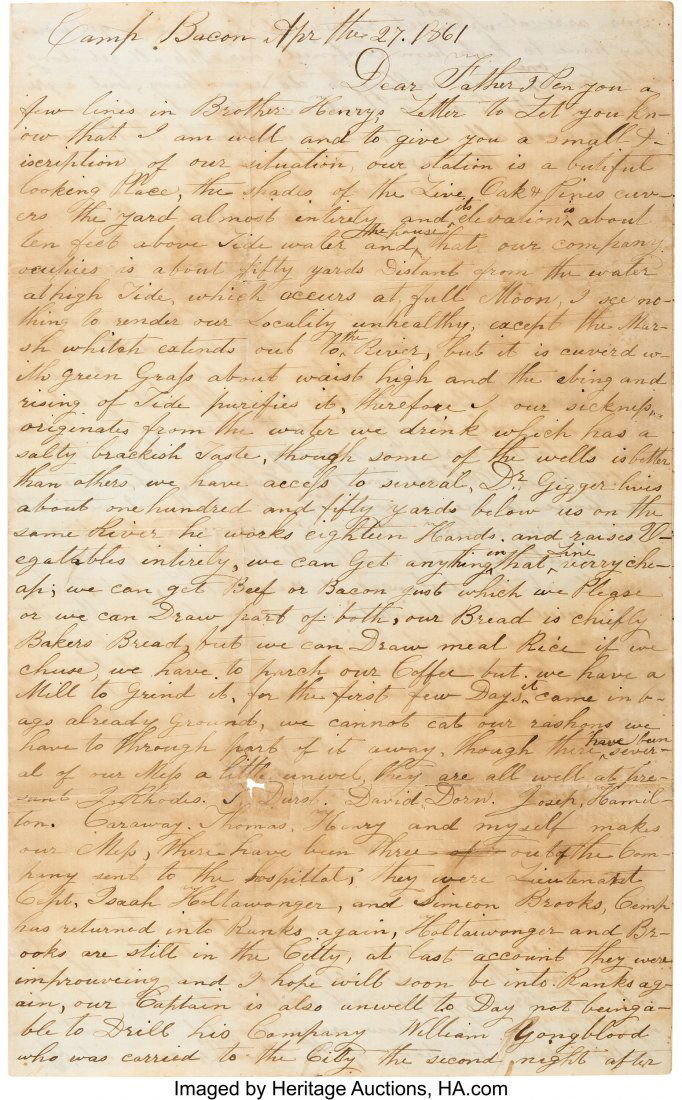 Camp Bacon Apr the 27. 1861
Dear Father I Pen you a
few lines in Brother Henrys Letter to Let you kn-
ow that I am well and to give you a small d-
iscription of our situation, our station is a butiful
looking Place, the shades of the Live Oak & Pines cuv-
ers the yard almost entirely and its elevation is about
ten feet above Tide water and the house that our company
ocupies is about fifty yards Distant from the water
at high Tide, which occurs at full Moon, I see no-
thing to render our Locality unhealthy, except the Mar-
sh whitch extends out to the River, but it is cuverd w-
ith green Grass about waist high and the ebing and
rising of Tide purifies it, therefore I our sickness
originates from the water we drink which has a
salty brackish Taste, though some of the wells is better
than others we have access to several, Dr. Gigger lives
about one hundred and fifty yards below us on the
same River he works eighteen Hands and raises V-
egatables entirely, we can Get anything in that Line verry che-
ap; we can get Beef or Bacon just which we Please
or we can Draw part of both, our Bread is chiefly
Bakers Bread, but we can Draw meal Rice if we
chuse, we have to parch our Coffee but we have a
Mill to Grind it, for the first few Days it came in b-
ags already Ground, we cannot eat our rashons we
have to through part of it away, though there have been sever-
al of our Mess a little unwel, they are all well at pre-
sant J. Rhodes. J. Durst. David Dorn. Joseph Hamil-
ton. Caraway. Thomas. Henry and myself makes
our Mess, there have been three out of the Com-
pany sent to the hospittal; they were Lieutenant
Cept, Isaah Holtawonger, and Simeon Brooks, Cemp
has returned into Ranks again, Holtawonger and Br-
ooks are still in the Citty, at last account they were
improuveing and I hope will soon be into Ranks ag-
ain, our Captain is also unwell to Day not being a-
ble to Drill his Company William Yongblood
who was carried to the City the second night after
Imaged by Heritage Auctions, HA.com